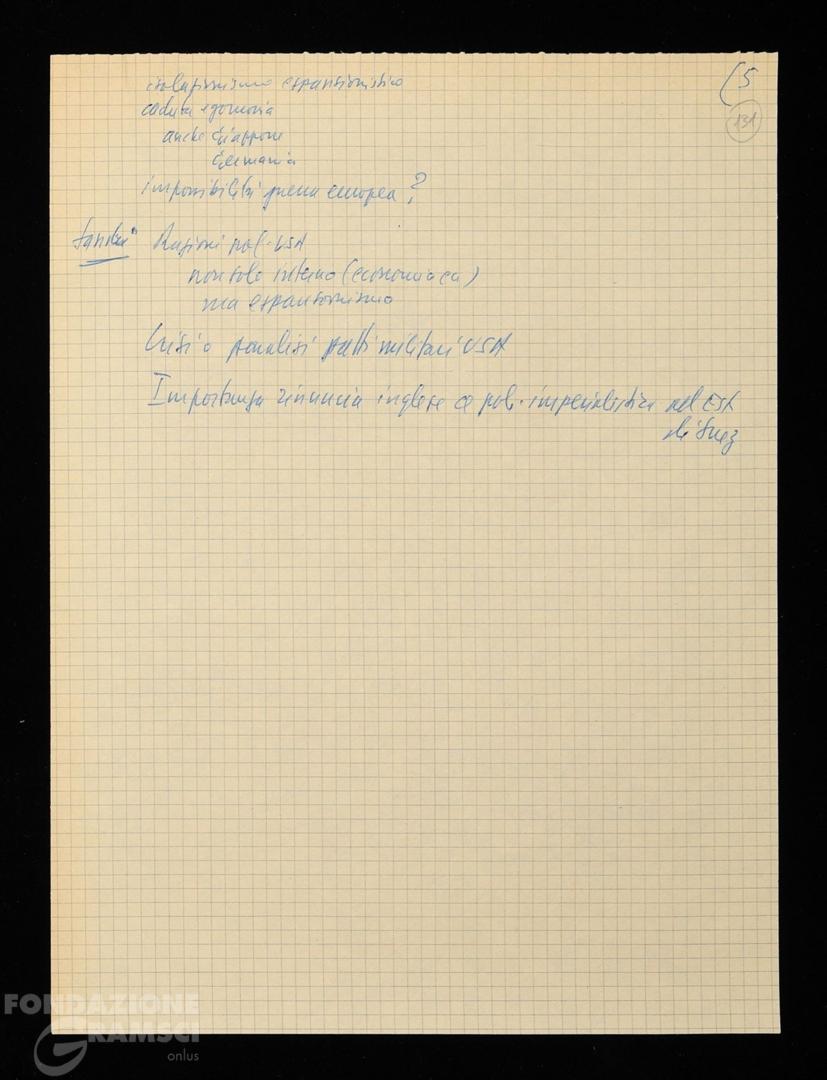 (5
131
isolazionismo espansionistico
caduta egemonia
anche Giappone
Germania
impossibilità guerra europea?
Ragioni pol. USA
non solo interno (economia ecc)
ma espansionismo
Crisi o paralisi patti militari USA
Importanza rinuncia inglese a pol. imperialistica nel Est
di Suez
FONDAZIONE
GRAMSCI
onlus